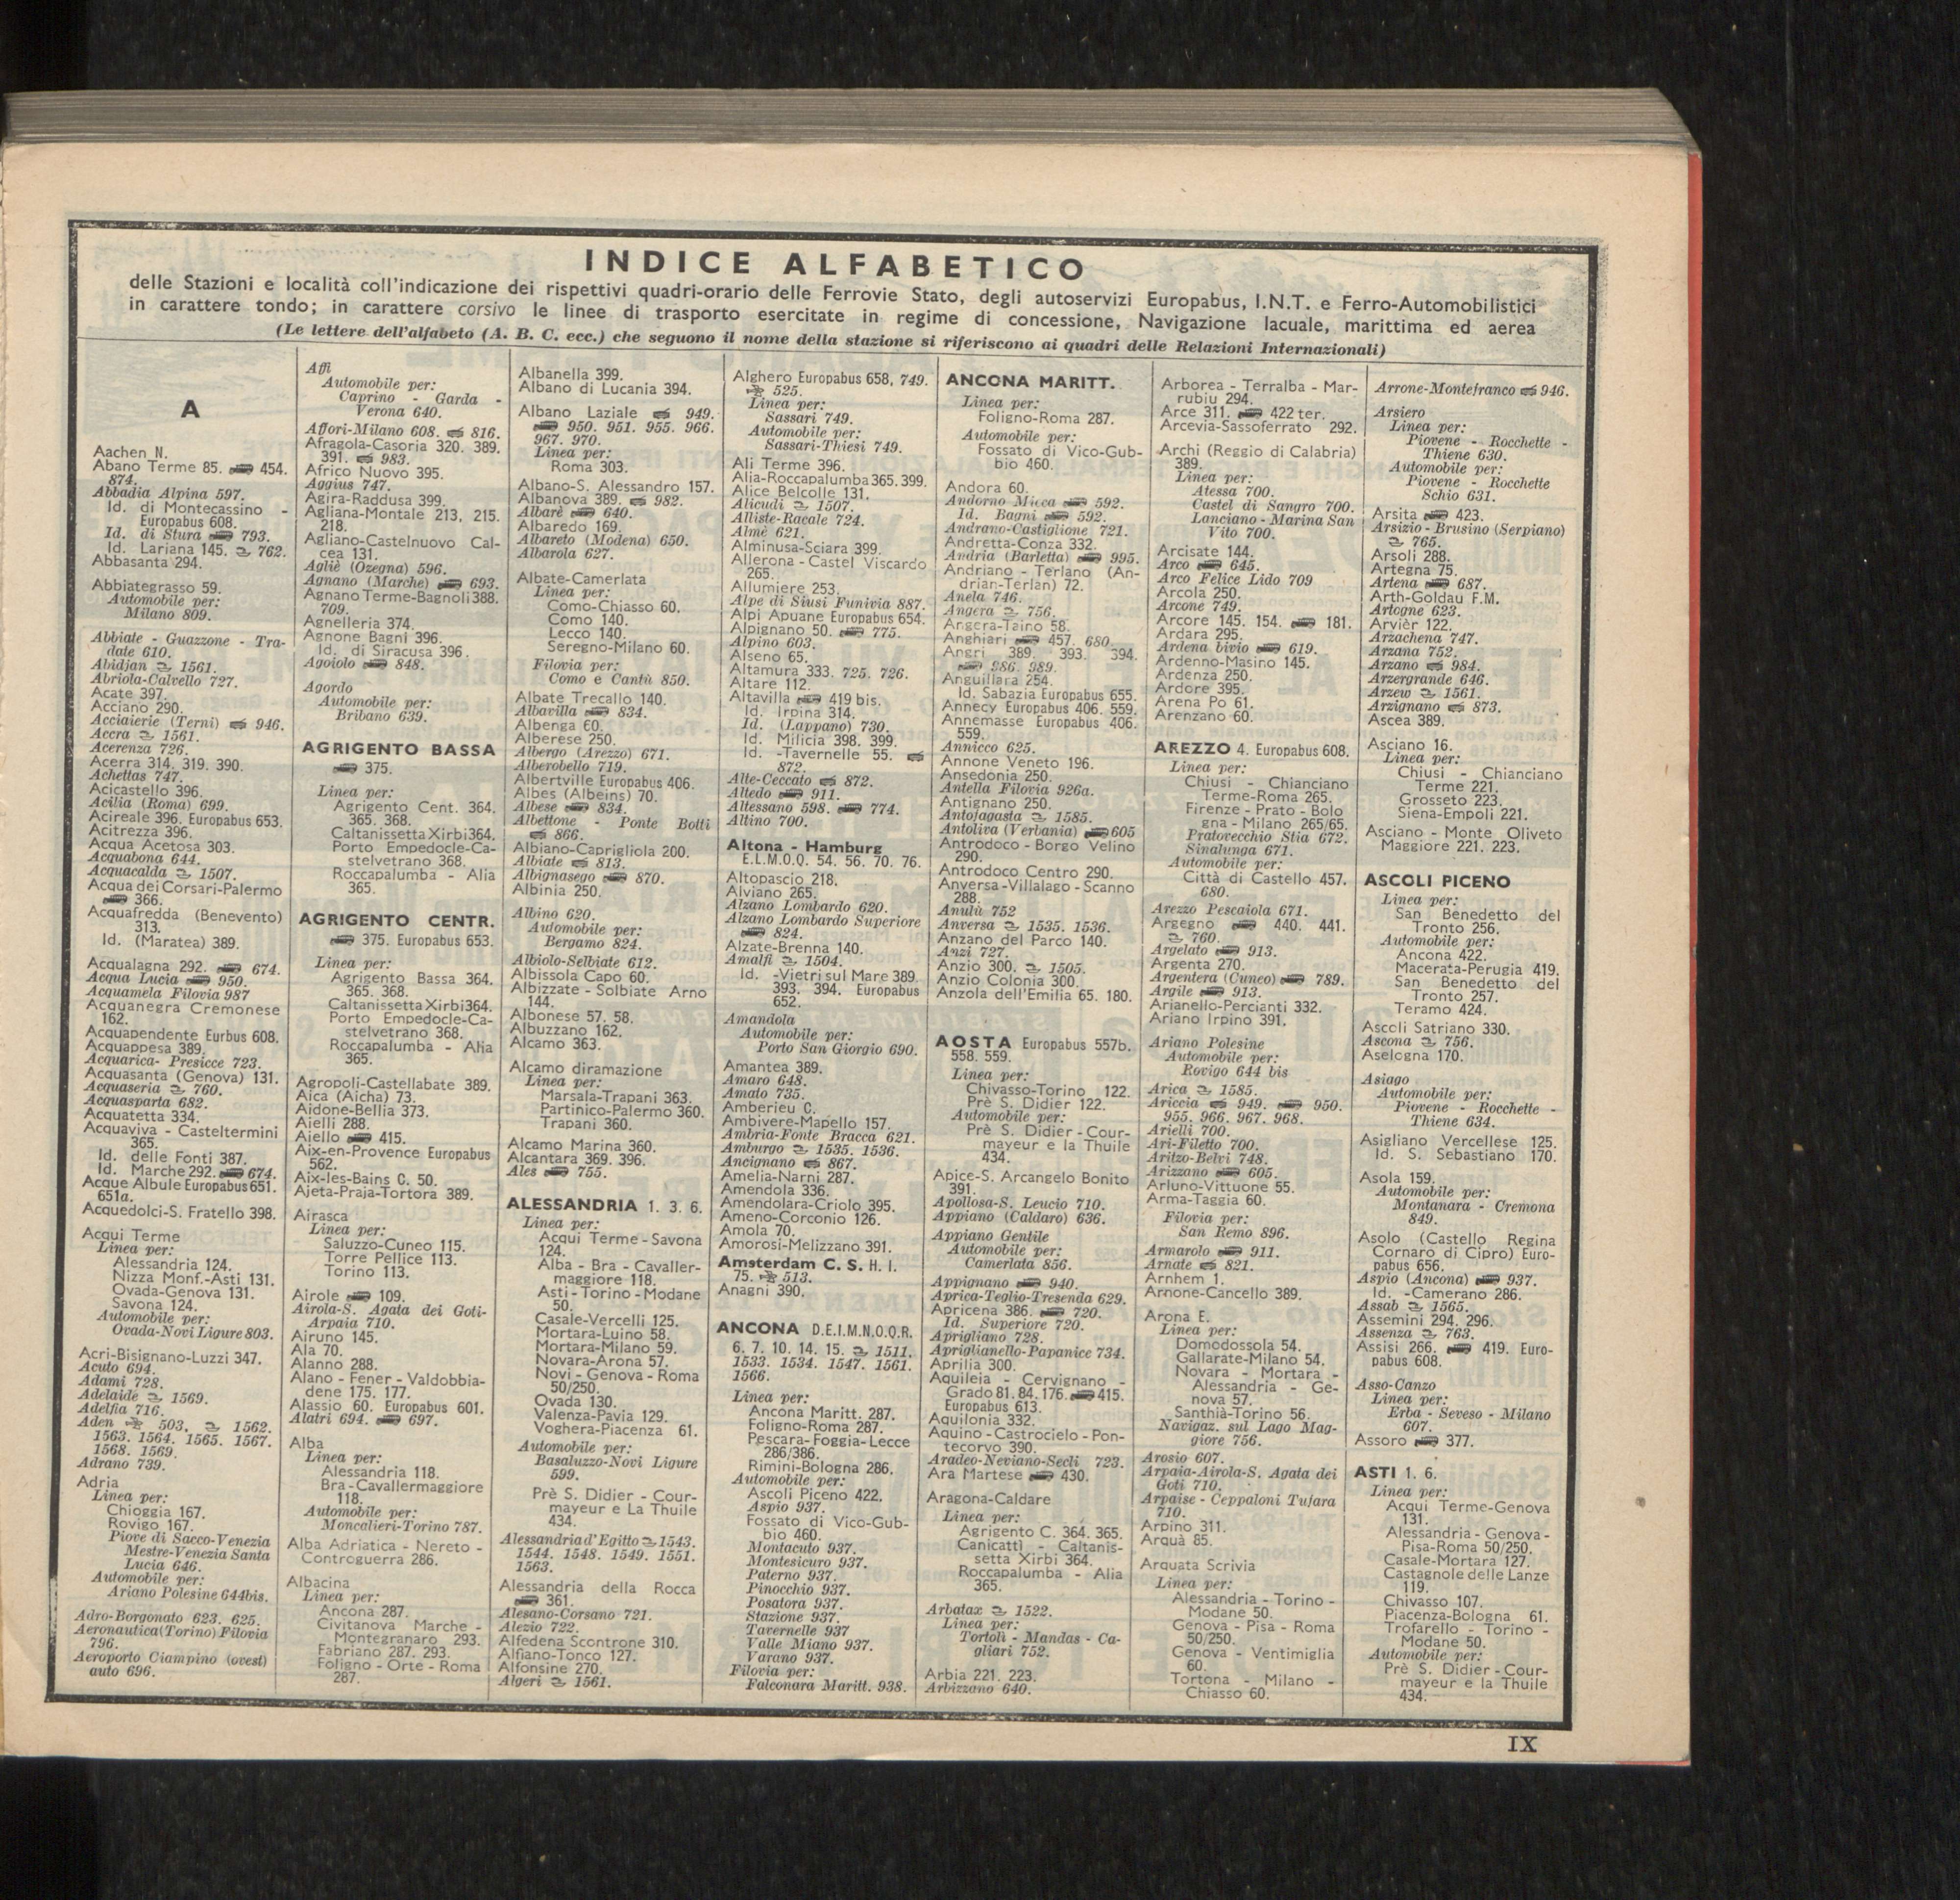 INDICE ALFABETICO
delle Stazioni e località coll'indicazione dei rispettivi quadri-orario delle Ferrovie Stato, degli autoservizi Europabus, I.N.T. e Ferro-Automobilistici
in carattere tondo; in carattere corsivo le linee di trasporto esercitate in regime di concessione, Navigazione lacuale, marittima ed aerea
(Le lettere dell'alfabeto (A. B. C. ecc.) che seguono il nome della stazione si riferiscono ai quadri delle Relazioni Internazionali)
A
Aachen N.
Abano Terme 85. 454.
874.
Abbadia Alpina 597.
Id. di Montecassino -
Europabus 608.
Id. di Stura 793.
Id. Lariana 145. 762.
Abbasanta 294.
Abbiategrasso 59.
Automobile per:
Milano 809.
Abbiate - Guazzone - Tra-
date 610.
Abidjan 1561.
Abriola-Calvello 727.
Acate 397.
Acciano 290.
Acciaierie (Terni) 946.
Accra 1561.
Acerenza 726.
Acerra 314. 319. 390.
Achettas 747.
Acicastello 396.
Acilia (Roma) 699.
Acireale 396. Europabus 653.
Acitrezza 396.
Acqua Acetosa 303.
Acquabona 644.
Acquacalda 1507.
Acqua dei Corsari-Palermo
366.
Acquafredda (Benevento)
313.
Id. (Maratea) 389.
Acqualagna 292. 674.
Acqua Lucia 950.
Acquamela Filovia 987
Acquanegra Cremonese
162.
Acquapendente Eurbus 608.
Acquappesa 389.
Acquarica- Presicce 723.
Acquasanta (Genova) 131.
Acquaseria 760.
Acquasparta 682.
Acquatetta 334.
Acquaviva - Casteltermini
365.
Id. delle Fonti 387.
Id. Marche 292. 674.
Acque Albule Europabus 651.
651a.
Acquedolci-S. Fratello 398.
Acqui Terme
Linea per:
Alessandria 124.
Nizza Monf.-Asti 131.
Ovada-Genova 131.
Savona 124.
Automobile per:
Ovada-Novi Ligure 803.
Acri-Bisignano-Luzzi 347.
Acuto 694.
Adami 728.
Adelaide 1569.
Adelfia 716.
Aden 503, 1562.
1563. 1564. 1565. 1567.
1568. 1569.
Adrano 739.
Adria
Linea per:
Chioggia 167.
Rovigo 167.
Piove di Sacco-Venezia
Mestre-Venezia Santa
Lucia 646.
Automobile per:
Ariano Polesine 644bis.
Adro-Borgonato 623. 625.
Aeronautica (Torino) Filovia
796.
Aeroporto Ciampino (ovest)
auto 696.
Affi
Automobile per:
Caprino - Garda -
Verona 640.
Affori-Milano 608. 816.
Afragola-Casoria 320. 389.
391. 983.
Africo Nuovo 395.
Aggius 747.
Agira-Raddusa 399.
Agliana-Montale 213, 215.
218.
Agliano-Castelnuovo Cal-
cea 131.
Agliè (Ozegna) 596.
Agnano (Marche) 693.
Agnano Terme-Bagnoli 388.
709.
Agnelleria 374.
Agnone Bagni 396.
Id. di Siracusa 396.
Agoiolo 848.
Agordo
Automobile per:
Bribano 639.
AGRIGENTO BASSA
375.
Linea per:
Agrigento Cent. 364.
365. 368.
Caltanissetta Xirbi 364.
Porto Empedocle-Ca-
stelvetrano 368.
Roccapalumba - Alia
365.
AGRIGENTO CENTR.
375. Europabus 653.
Linea per:
Agrigento Bassa 364.
365. 368.
Caltanissetta Xirbi 364.
Porto Empedocle-Ca-
stelvetrano 368.
Roccapalumba - Alia
365.
Agropoli-Castellabate 389.
Aica (Aicha) 73.
Aidone-Bellia 373.
Aielli 288.
Aiello 415.
Aix-en-Provence Europabus
562.
Aix-les-Bains C. 50.
Ajeta-Praja-Tortora 389.
Airasca
Linea per:
Saluzzo-Cuneo 115.
Torre Pellice 113.
Torino 113.
Airole 109.
Airola-S. Agata dei Goti-
Arpaia 710.
Airuno 145.
Ala 70.
Alanno 288.
Alano - Fener - Valdobbia-
dene 175. 177.
Alassio 60. Europabus 601.
Alatri 694. 697.
Alba
Linea per:
Alessandria 118.
Bra-Cavallermaggiore
118.
Automobile per:
Moncalieri-Torino 787.
Alba Adriatica - Nereto -
Controguerra 286.
Albacina
Linea per:
Ancona 287.
Civitanova Marche -
Montegranaro 293.
Fabriano 287. 293.
Foligno - Orte - Roma
287.
Albanella 399.
Albano di Lucania 394.
Albano Laziale 949.
950. 951. 955. 966.
967. 970.
Linea per:
Roma 303.
Albano-S. Alessandro 157.
Albanova 389. 982.
Albarè 640.
Albaredo 169.
Albareto (Modena) 650.
Albarola 627.
Albate-Camerlata
Linea per:
Como-Chiasso 60.
Como 140.
Lecco 140.
Seregno-Milano 60.
Filovia per:
Como e Cantù 850.
Albate Trecallo 140.
Albavilla 834.
Albenga 60.
Alberese 250.
Albergo (Arezzo) 671.
Alberobello 719.
Albertville Europabus 406.
Albes (Albeins) 70.
Albese 834.
Albettone - Ponte Botti
866.
Albiano-Caprigliola 200.
Albiate 813.
Albignasego 870.
Albinia 250.
Albino 620.
Automobile per:
Bergamo 824.
Albiolo-Selbiate 612.
Albissola Capo 60.
Albizzate - Solbiate Arno
144.
Albonese 57. 58.
Albuzzano 162.
Alcamo 363.
Alcamo diramazione
Linea per:
Marsala-Trapani 363.
Partinico-Palermo 360.
Trapani 360.
Alcamo Marina 360.
Alcantara 369. 396.
Ales 755.
ALESSANDRIA 1. 3. 6.
Linea per:
Acqui Terme-Savona
124.
Alba - Bra - Cavaller-
maggiore 118.
Asti-Torino-Modane
50.
Casale-Vercelli 125.
Mortara-Luino 58.
Mortara-Milano 59.
Novara-Arona 57.
Novi - Genova - Roma
50/250.
Ovada 130.
Valenza-Pavia 129.
Voghera-Piacenza 61.
Automobile per:
Basaluzzo-Novi Ligure
599.
Prè S. Didier - Cour-
mayeur e La Thuile
434.
Alessandria d'Egitto 1543.
1544. 1548. 1549. 1551.
1563.
Alessandria della Rocca
361.
Alesano-Corsano 721.
Alezio 722.
Alfedena Scontrone 310.
Alfiano-Tonco 127.
Alfonsine 270.
Algeri 1561.
Alghero Europabus 658, 749.
525.
Linea per:
Sassari 749.
Automobile per:
Sassari-Thiesi 749.
Ali Terme 396.
Alia-Roccapalumba 365.399.
Alice Belcolle 131.
Alicudi 1507.
Alliste-Racale 724.
Almè 621.
Alminusa-Sciara 399.
Allerona - Castel Viscardo
265.
Allumiere 253.
Alpe di Siusi Funivia 887.
Alpi Apuane Europabus 654.
Alpignano 50. 775.
Alpino 603.
Alseno 65.
Altamura 333. 725. 726.
Altare 112.
Altavilla 419 bis.
Id. Irpina 314.
Id. (Lappano) 730.
Id. Milicia 398. 399.
Id. -Tavernelle 55.
872.
Alte-Ceccato 872.
Altedo 911.
Altessano 598. 774.
Altino 700.
Altona - Hamburg
E.L.M.O.Q. 54. 56. 70. 76.
Altopascio 218.
Alviano 265.
Alzano Lombardo 620.
Alzano Lombardo Superiore
824.
Alzate-Brenna 140.
Amalfi 1504.
Id. -Vietri sul Mare 389.
393. 394. Europabus
652.
Amandola
Automobile per:
Porto San Giorgio 690.
Amantea 389.
Amaro 648.
Amato 735.
Amberieu C.
Ambivere-Mapello 157.
Ambria-Fonte Bracca 621.
Amburgo 1535. 1536.
Ancignano 867.
Amelia-Narni 287.
Amendola 336.
Amendolara-Criolo 395.
Ameno-Corconio 126.
Amola 70.
Amorosi-Melizzano 391.
Amsterdam C. S. H. I.
75. 513.
Anagni 390.
ANCONA D.E.I.M.N.O.Q.R.
6. 7. 10. 14. 15. 1511.
1533. 1534. 1547. 1561.
1566.
Linea per:
Ancona Maritt. 287.
Foligno-Roma 287.
Pescara-Foggia-Lecce
286/386.
Rimini-Bologna 286.
Automobile per:
Ascoli Piceno 422.
Aspio 937.
Fossato di Vico-Gub-
bio 460.
Montacuto 937.
Montesicuro 937.
Paterno 937.
Pinocchio 937.
Posatora 937.
Stazione 937.
Tavernelle 937
Valle Miano 937.
Varano 937.
Filovia per:
Falconara Maritt. 938.
ANCONA MARITT.
Linea per:
Foligno-Roma 287.
Automobile per:
Fossato di Vico-Gub-
bio 460.
Andora 60.
Andorno Micca 592.
Id. Bagni 592.
Andrano-Castiglione 721.
Andretta-Conza 332.
Andria (Barletta) 995.
Andriano - Terlano (An-
drian-Terlan) 72.
Anela 746.
Angera 756.
Angera-Taino 58.
Anghiari 457. 680.
Angri 389. 393. 394.
986. 989.
Anguillara 254.
Id. Sabazia Europabus 655.
Annecy Europabus 406. 559.
Annemasse Europabus 406.
559.
Annicco 625.
Annone Veneto 196.
Ansedonia 250.
Antella Filovia 926a.
Antignano 250.
Antofagasta 1585.
Antoliva (Verbania) 605
Antrodoco - Borgo Velino
290.
Antrodoco Centro 290.
Anversa-Villalago-Scanno
288.
Anulù 752
Anversa 1535. 1536.
Anzano del Parco 140.
Anzi 727.
Anzio 300. 1505.
Anzio Colonia 300.
Anzola dell'Emilia 65. 180.
AOSTA Europabus 557b.
558. 559.
Linea per:
Chivasso-Torino 122.
Prè S. Didier 122.
Automobile per:
Prè S. Didier-Cour-
mayeur e la Thuile
434.
Apice-S. Arcangelo Bonito
391.
Apollosa-S. Leucio 710.
Appiano (Caldaro) 636.
Appiano Gentile
Automobile per:
Camerlata 856.
Appignano 940.
Aprica-Teglio-Tresenda 629.
Apricena 386. 720.
Id. Superiore 720.
Aprigliano 728.
Apriglianello-Papanice 734.
Aprilia 300.
Aquileia - Cervignano -
Grado 81. 84. 176. 415.
Europabus 613.
Aquilonia 332.
Aquino-Castrocielo-Pon-
tecorvo 390.
Aradeo-Neviano-Seclì 723.
Ara Martese 430.
Aragona-Caldare
Linea per:
Agrigento C. 364. 365.
Canicattì - Caltanis-
setta Xirbi 364.
Roccapalumba - Alia
365.
Arbatax 1522.
Linea per:
Tortolì - Mandas - Ca-
gliari 752.
Arbia 221. 223.
Arbizzano 640.
Arborea - Terralba - Mar-
rubiu 294.
Arce 311. 422 ter.
Arcevia-Sassoferrato 292.
Archi (Reggio di Calabria)
389.
Linea per:
Atessa 700.
Castel di Sangro 700.
Lanciano-Marina San
Vito 700.
Arcisate 144.
Arco 645.
Arco Felice Lido 709
Arcola 250.
Arcone 749.
Arcore 145. 154. 181.
Ardara 295.
Ardena bivio 619.
Ardenno-Masino 145.
Ardenza 250.
Ardore 395.
Arena Po 61.
Arenzano 60.
AREZZO 4. Europabus 608.
Linea per:
Chiusi - Chianciano
Terme-Roma 265.
Firenze - Prato - Bolo
gna - Milano 265/65.
Pratovecchio Stia 672.
Sinalunga 671.
Automobile per:
Città di Castello 457.
680.
Arezzo Pescaiola 671.
Argegno 440. 441.
760.
Argelato 913.
Argenta 270.
Argentera (Cuneo) 789.
Argile 913.
Arianello-Percianti 332.
Ariano Irpino 391.
Ariano Polesine
Automobile per:
Rovigo 644 bis
Arica 1585.
Ariccia 949. 950.
955. 966. 967. 968.
Arielli 700.
Ari-Filetto 700.
Aritzo-Belvì 748.
Arizzano 605.
Arluno-Vittuone 55.
Arma-Taggia 60.
Filovia per:
San Remo 896.
Armarolo 911.
Arnate 821.
Arnhem 1.
Arnone-Cancello 389.
Arona E.
Linea per:
Domodossola 54.
Gallarate-Milano 54.
Novara - Mortara -
Alessandria - Ge-
nova 57.
Santhià-Torino 56.
Navigaz. sul Lago Mag-
giore 756.
Arosio 607.
Arpaia-Airola-S. Agata dei
Goti 710.
Arpaise - Ceppaloni Tufara
710.
Arpino 311.
Arquà 85.
Arquata Scrivia
Linea per:
Alessandria - Torino -
Modane 50.
Genova - Pisa - Roma
50/250.
Genova - Ventimiglia
60.
Tortona - Milano -
Chiasso 60.
Arrone-Montefranco 946.
Arsiero
Linea per:
Piovene - Rocchette -
Thiene 630.
Automobile per:
Piovene - Rocchette
Schio 631.
Arsita 423.
Arsizio - Brusino (Serpiano)
765.
Arsoli 288.
Artegna 75.
Artena 687.
Arth-Goldau F.M.
Artogne 623.
Arvièr 122.
Arzachena 747.
Arzana 752.
Arzano 984.
Arzergrande 646.
Arzew 1561.
Arzignano 873.
Ascea 389.
Asciano 16.
Linea per:
Chiusi - Chianciano
Terme 221.
Grosseto 223.
Siena-Empoli 221.
Asciano - Monte Oliveto
Maggiore 221. 223.
ASCOLI PICENO
Linea per:
San Benedetto del
Tronto 256.
Automobile per:
Ancona 422.
Macerata-Perugia 419.
San Benedetto del
Tronto 257.
Teramo 424.
Ascoli Satriano 330.
Ascona 756.
Aselogna 170.
Asiago
Automobile per:
Piovene - Rocchette -
Thiene 634.
Asigliano Vercellese 125.
Id. S. Sebastiano 170.
Asola 159.
Automobile per:
Montanara - Cremona
849.
Asolo (Castello Regina
Cornaro di Cipro) Euro-
pabus 656.
Aspio (Ancona) 937.
Id. -Camerano 286.
Assab 1565.
Assemini 294. 296.
Assenza 763.
Assisi 266. 419. Euro-
pabus 608.
Asso-Canzo
Linea per:
Erba - Seveso - Milano
607.
Assoro 377.
ASTI 1. 6.
Linea per:
Acqui Terme-Genova
131.
Alessandria-Genova-
Pisa-Roma 50/250.
Casale-Mortara 127.
Castagnole delle Lanze
119.
Chivasso 107.
Piacenza-Bologna 61.
Trofarello - Torino -
Modane 50.
Automobile per:
Prè S. Didier-Cour-
mayeur e la Thuile
434.
IX